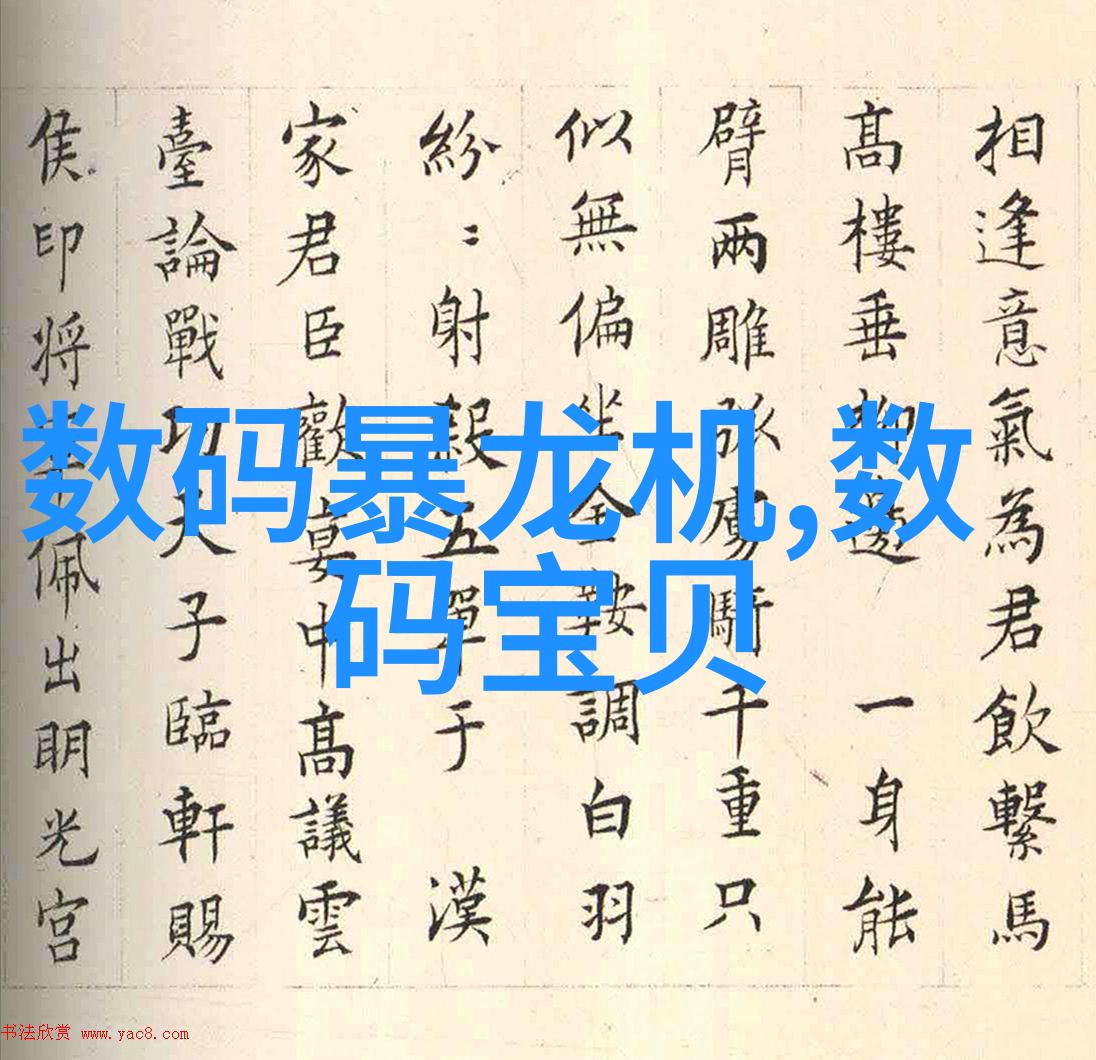 数码暴龙机,数
码宝贝
相逢意氣為君飲繫馬
髙樓垂柳邊 一身能
臂兩雕弧虜騎千重只
似無偏坐金鞍調白羽
紛〻射殺五單于 漢
家君臣歡宴中髙議雲
臺論戰功天子臨軒賜
侯印将軍佩出明光宫
书法欣赏 www.yac8.com